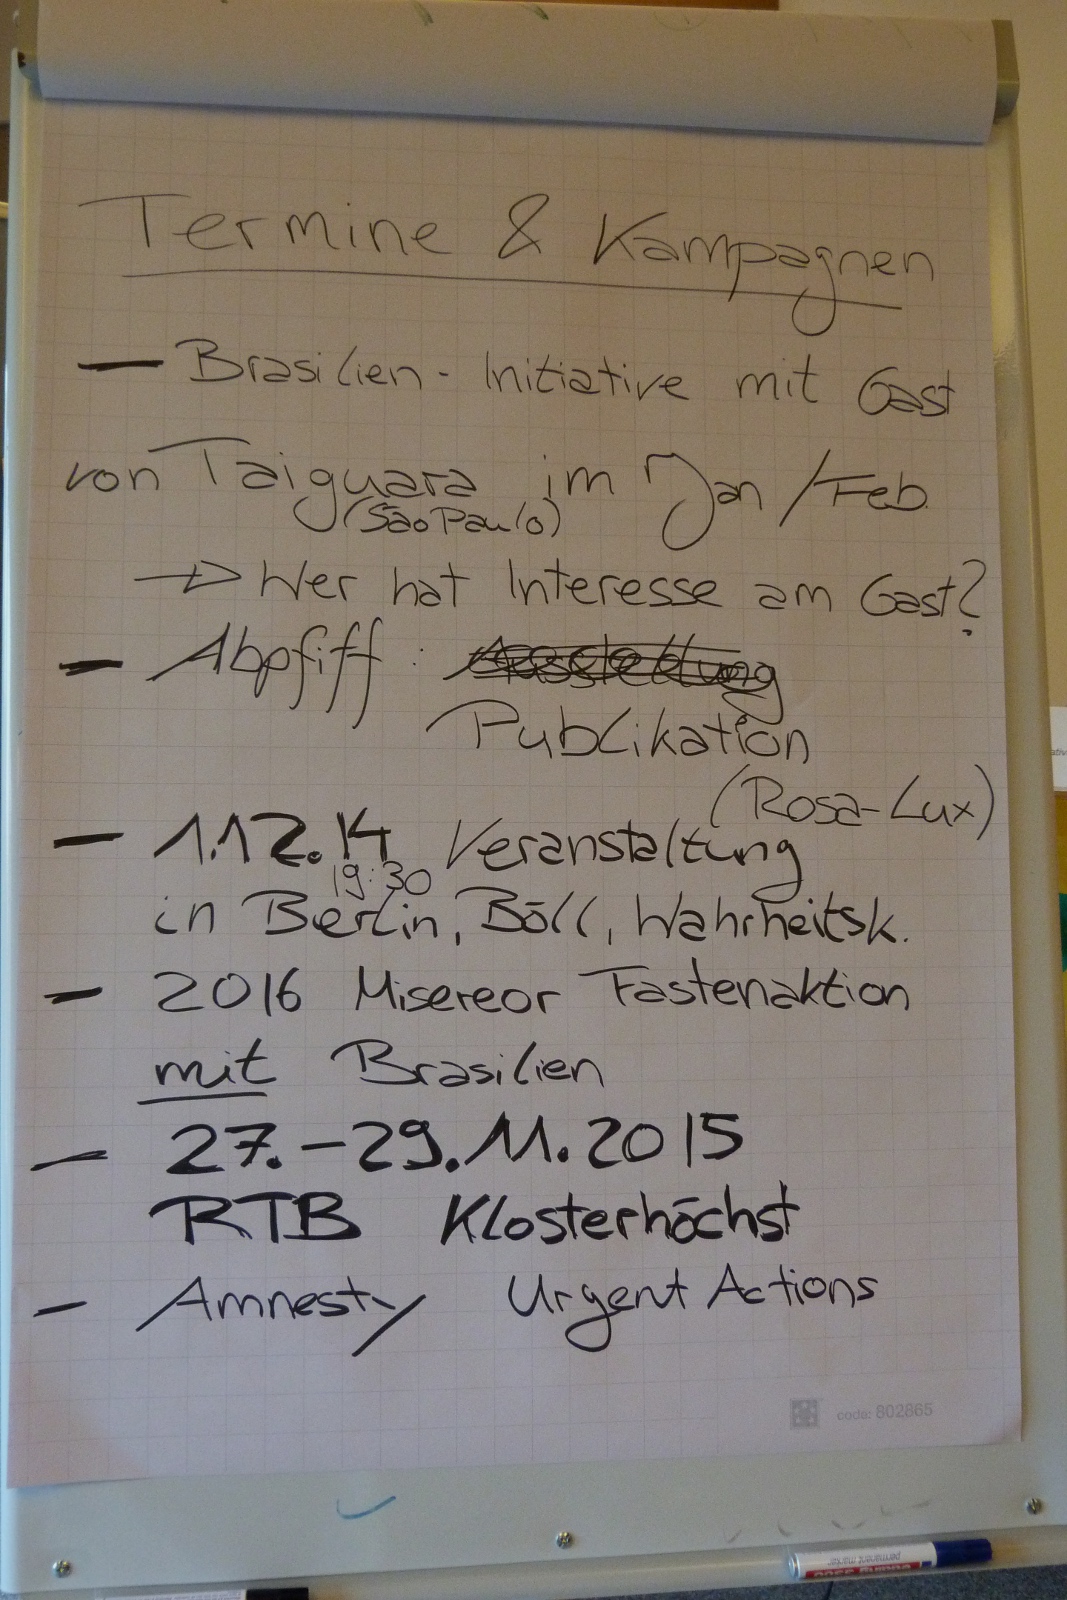 Termine & Kampagnen
– Brasilien-Initiative mit Gast
von Taiguara im Jan/Feb.
(São Paulo)
→ Wer hat Interesse am Gast?
– Abpfiff: Ausstellung
Publikation
(Rosa-Lux)
– 1.12.14 Veranstaltung
19:30
in Berlin, Böll, Wahrheitsk.
– 2016 Misereor Fastenaktion
mit Brasilien
– 27.–29.11.2015
RTB Klosterhöchst
– Amnesty Urgent Actions
code: 802865
permanent marker